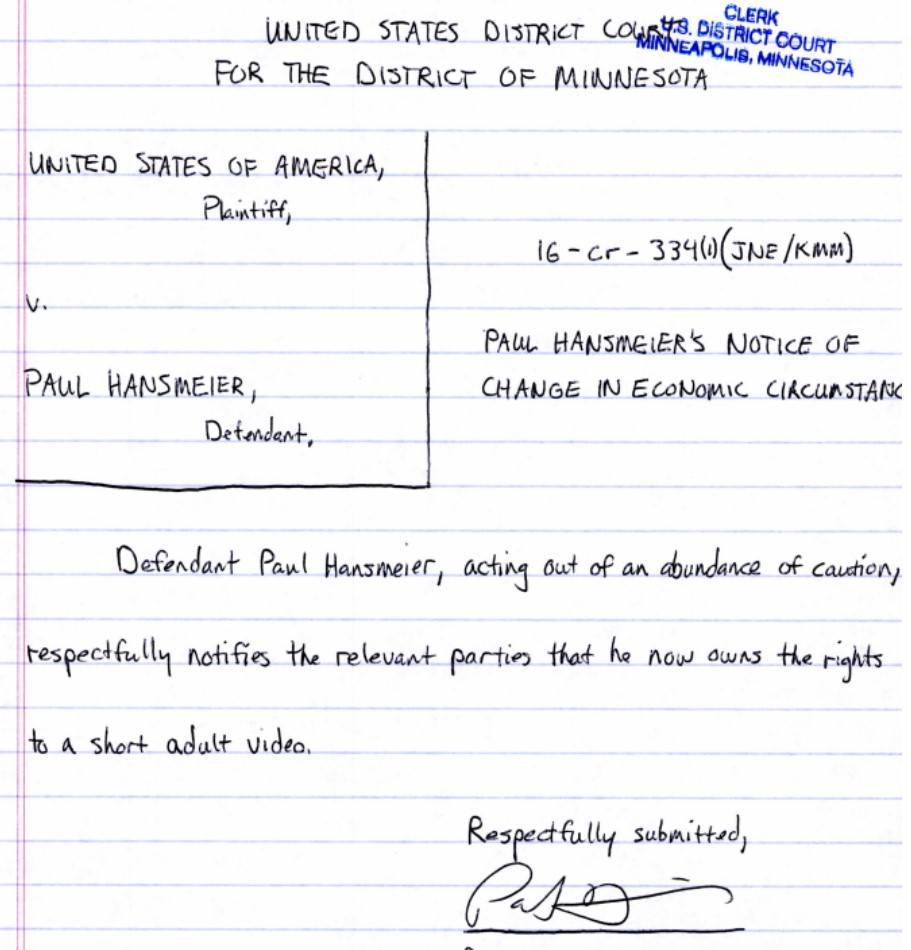 CLERK
U.S. DISTRICT COURT
MINNEAPOLIS, MINNESOTA
UNITED STATES DISTRICT COURT
FOR THE DISTRICT OF MINNESOTA
UNITED STATES OF AMERICA,
Plaintiff,
v.
PAUL HANSMEIER,
Defendant,
16-cr-334(1)(JNE/KMM)
PAUL HANSMEIER'S NOTICE OF
CHANGE IN ECONOMIC CIRCUMSTANC
Defendant Paul Hansmeier, acting out of an abundance of caution,
respectfully notifies the relevant parties that he now owns the rights
to a short adult video.
Respectfully submitted,